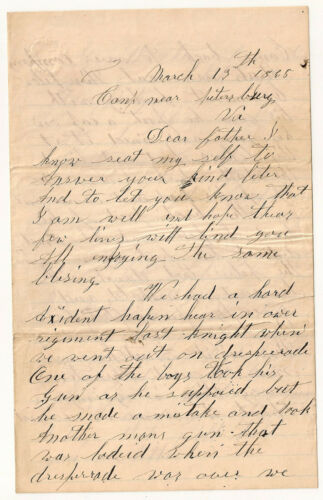 March 13th 1865
Camp near petersburg
Va
Dear father I
know seat my self to
anser your kind leter
and to let you know that
I am well and hope thear
few lines will find you
all injoying the same
blising
We had a hard
axident hapen hear in over
regiment last knight when
we went out on dresperade
One of the boys took his
gun as he supposed but
he made a mistake and took
Another mans gun that
was loded when the
dresperade was over we